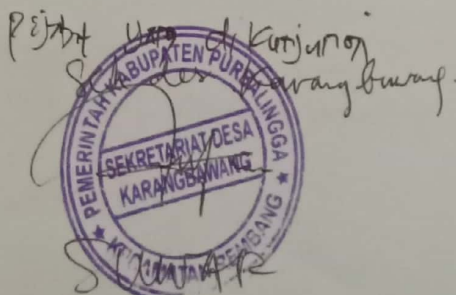 Pejabat yang di Kunjungi
Sekdes Karangbawang.
PEMERINTAH KABUPATEN PURBALINGGA
SEKRETARIAT DESA
KARANGBAWANG
KECAMATAN REMBANG